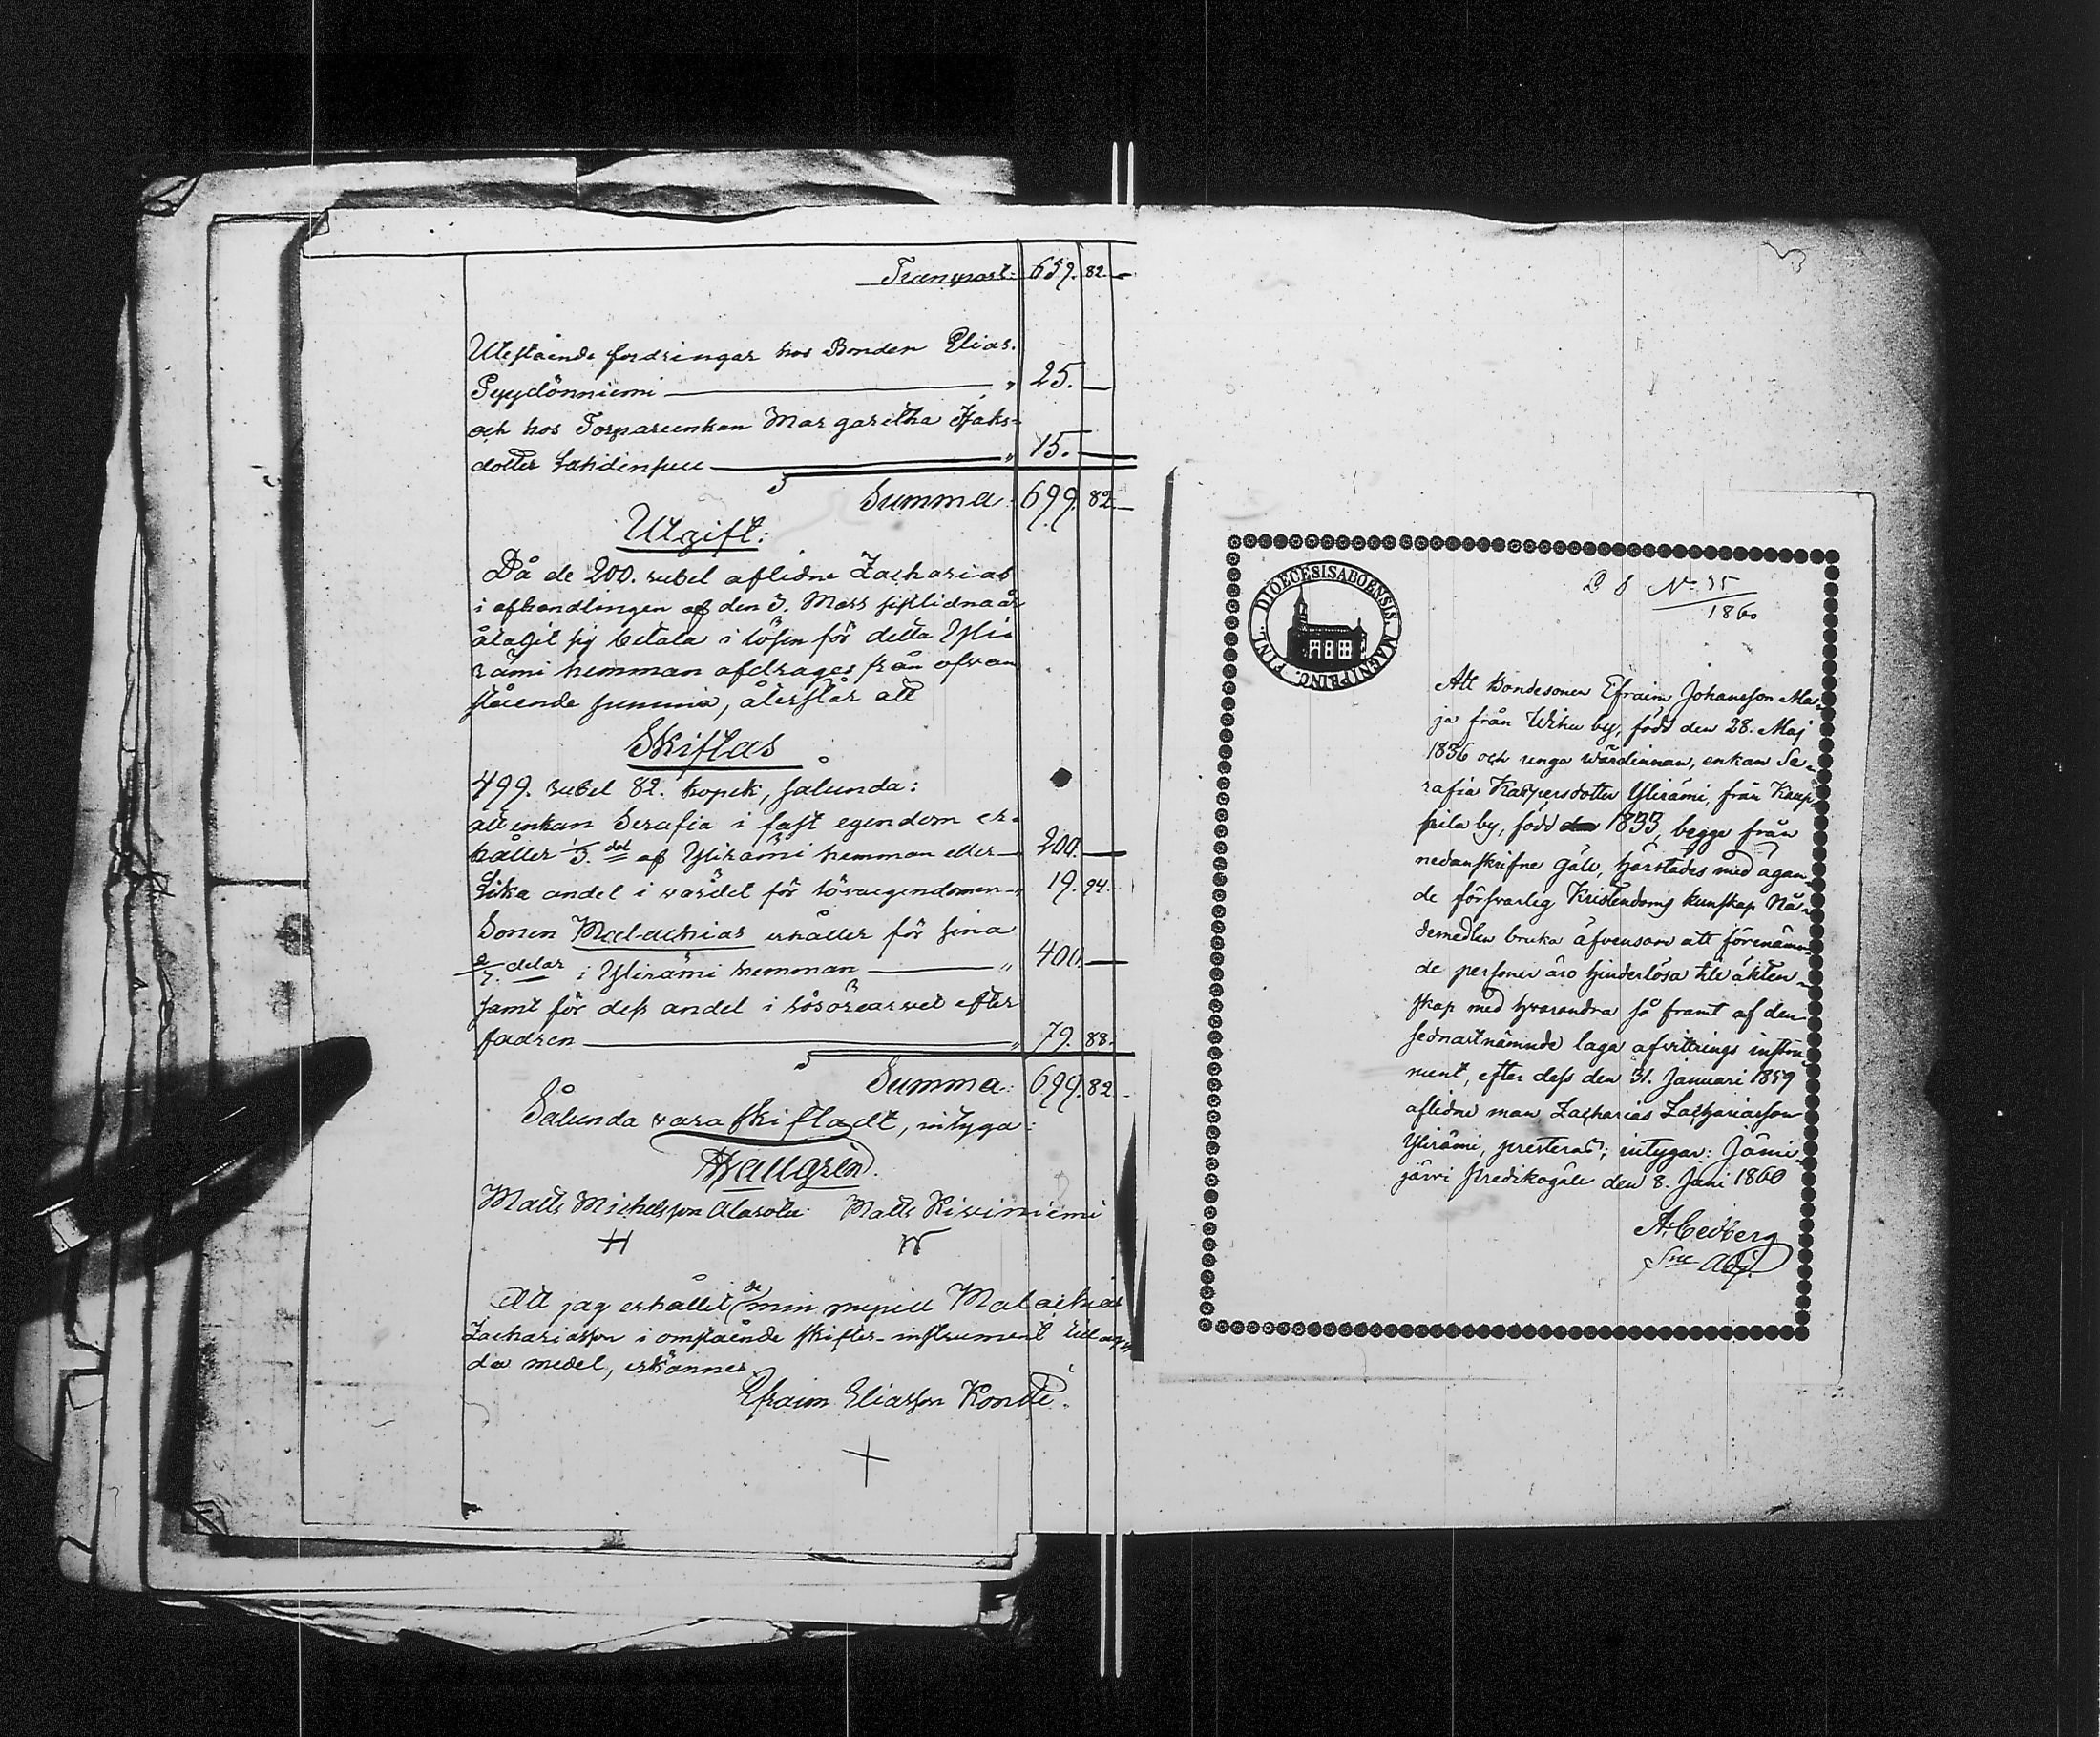 Transport: 659. 82.
Utestående fordringar hos Bonden Elias
Pyydönniemi " 25.
och hos Torpareenkan Margaretha Isaks-
dotter " 15.
Summa 699. 82.
Utgift:
Då de 200. rubel aflidne Zacharias
i afhandlingen af den 3. Mars sistlidna år
åtagit sig betala i lösen för detta Yli-
rämi hemman afdrages från ofvan
stående summa, återstår att
Skiftas
499. rubel 82. kopek, sålunda:
att enkan Serafia i fast egendom er-
håller 1/3. del af Ylirämi hemman eller 200.
Lika andel i värdet för lösaegendomen 19. 94.
Sonen Malachias erhåller för sina
delar i Ylirämi hemman " 400.
samt för dess andel i lösörearvet efter
fadren " 79. 88.
Summa: 699. 82.
Sålunda vara skiftadt, intyga:
Hallgrén.
Matts Michelsson Alasola Matts Kiviniemi
Att jag erhållit de min pupill Malachias
Zachariasson i omstående skiftes-instrument tillagn
da medel, erkännes
Efraim Eliasson Kontti.
DIOECESIS ABOENSIS. MAGNI PRINC. FINL.
No 35
1860
Att Bondesonen Efraim Johansson Ma-
ja från Wihu by, född den 28. Maj
1836 och unga wärdinnan, enkan Se-
rafia Kaspersdotter Ylirämi, från Kaup-
pila by, född den 1833, begge från
nedanskrifne Gäll, härstädes med ägan-
de försvarlig Kristendoms kunskap Nå-
demedlen bruka äfvensom att förenämn-
de personer äro hinderlösa till äkten-
skap med hvarandra så framt af den
sednastnämnde laga afvittrings instru-
ment, efter dess den 31. Januari 1859
aflidne man Zacharias Zachariasson
Ylirämi, presteras; intygar: Jämi-
järvi Predikogäll den 8. Juni 1860
A. Cedberg
Sne Adj.